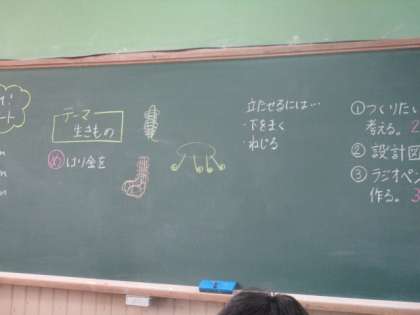 テーマ
生きもの
め はり金を
立たせるには…
・下をまく
・ねじる
① つくりたい
考える。
② 設計図
③ ラジオペン
作る。